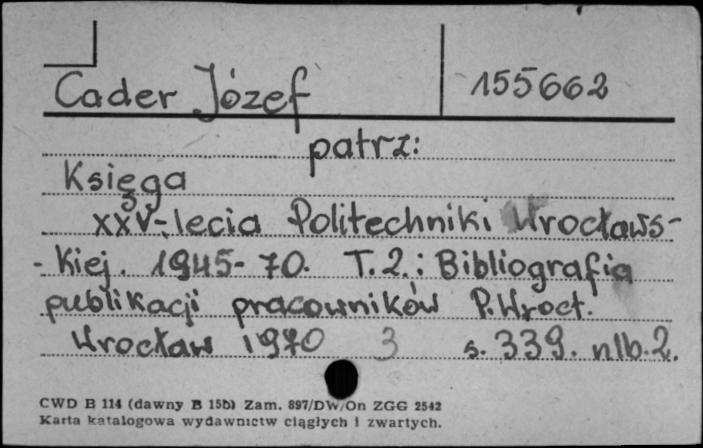 Cader Józef 155662
patrz:
Księga
XXV-lecia Politechniki Wrocławs-
-kiej. 1945-70. T.2.: Bibliografia
publikacji pracowników P.Wrocł.
Wrocław 1970 3 s. 339. nlb. 2.
CWD B 114 (dawny B 15b) Zam. 897/DW/On ZGG 2542
Karta katalogowa wydawnictw ciągłych i zwartych.